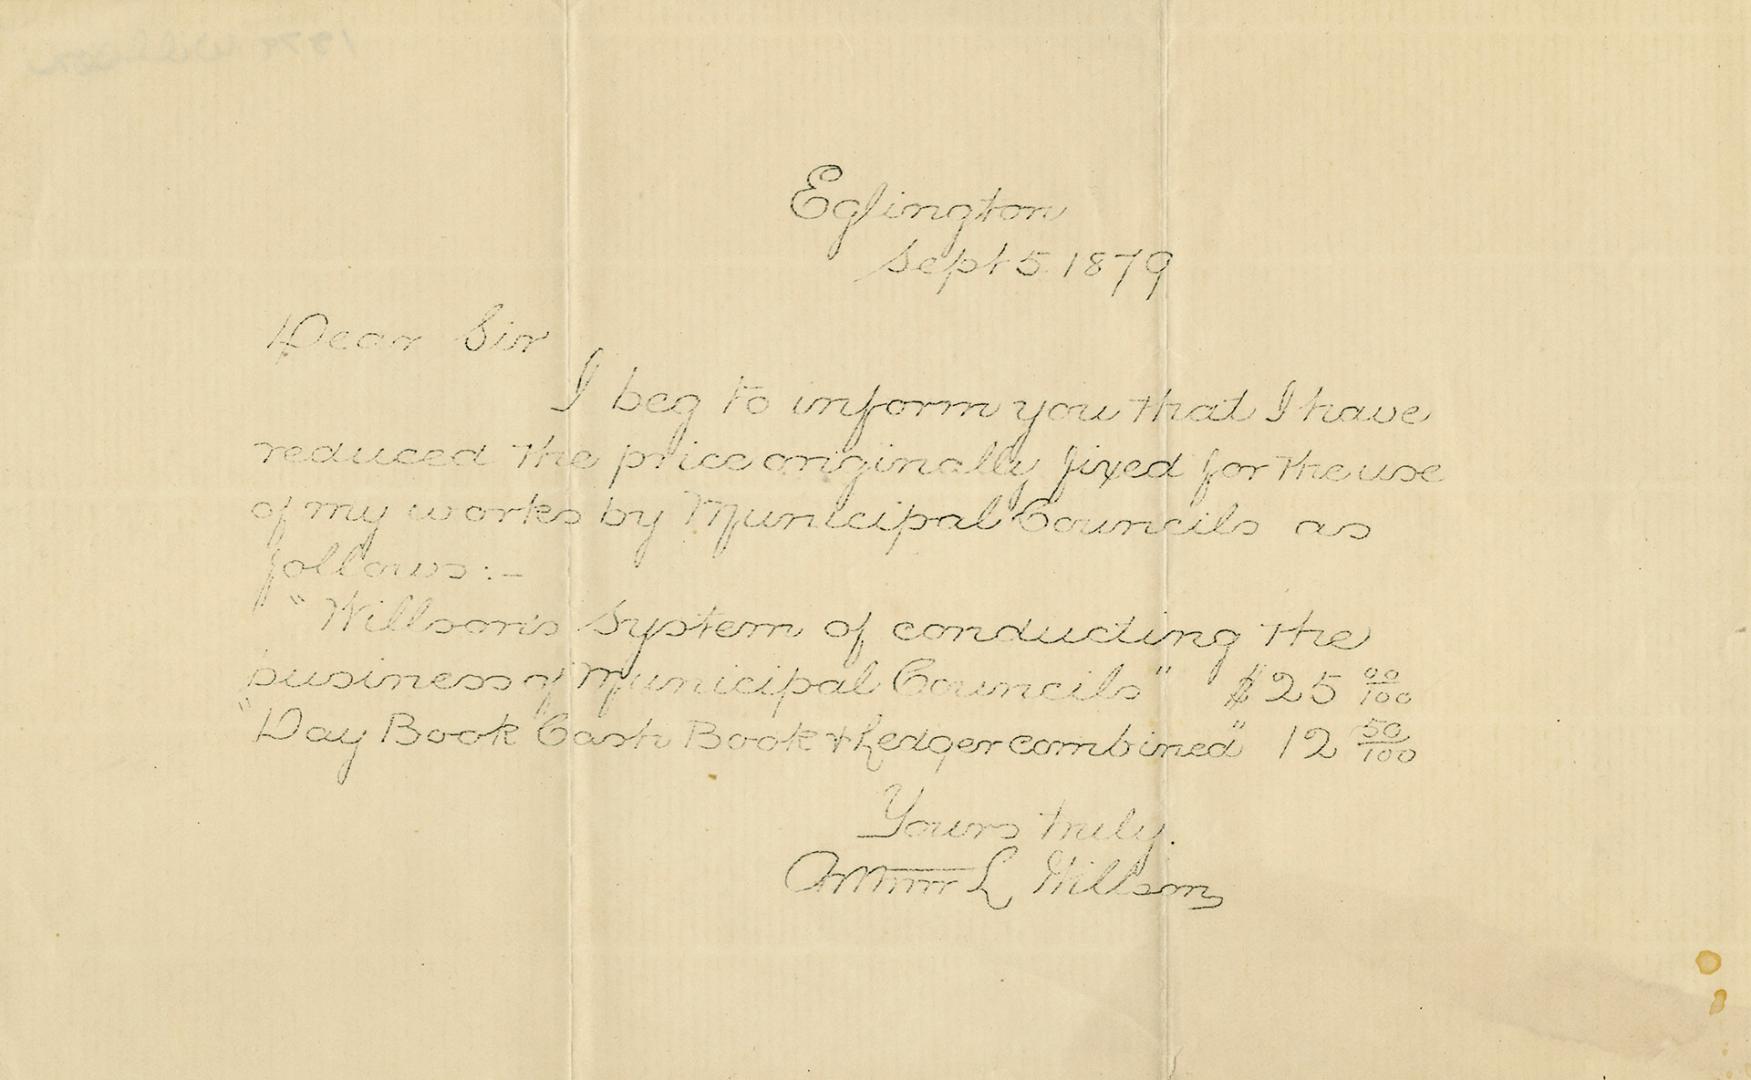 Eglington
Sept 5 1879
Dear Sir
I beg to inform you that I have
reduced the price originally fixed for the use
of my works by Municipal Councils as
follows:-
"Willson's System of conducting the
business of Municipal Councils" $25 00/100
"Day Book Cash Book & Ledger combined" 12 50/100
Yours truly.
Arthur L Willson